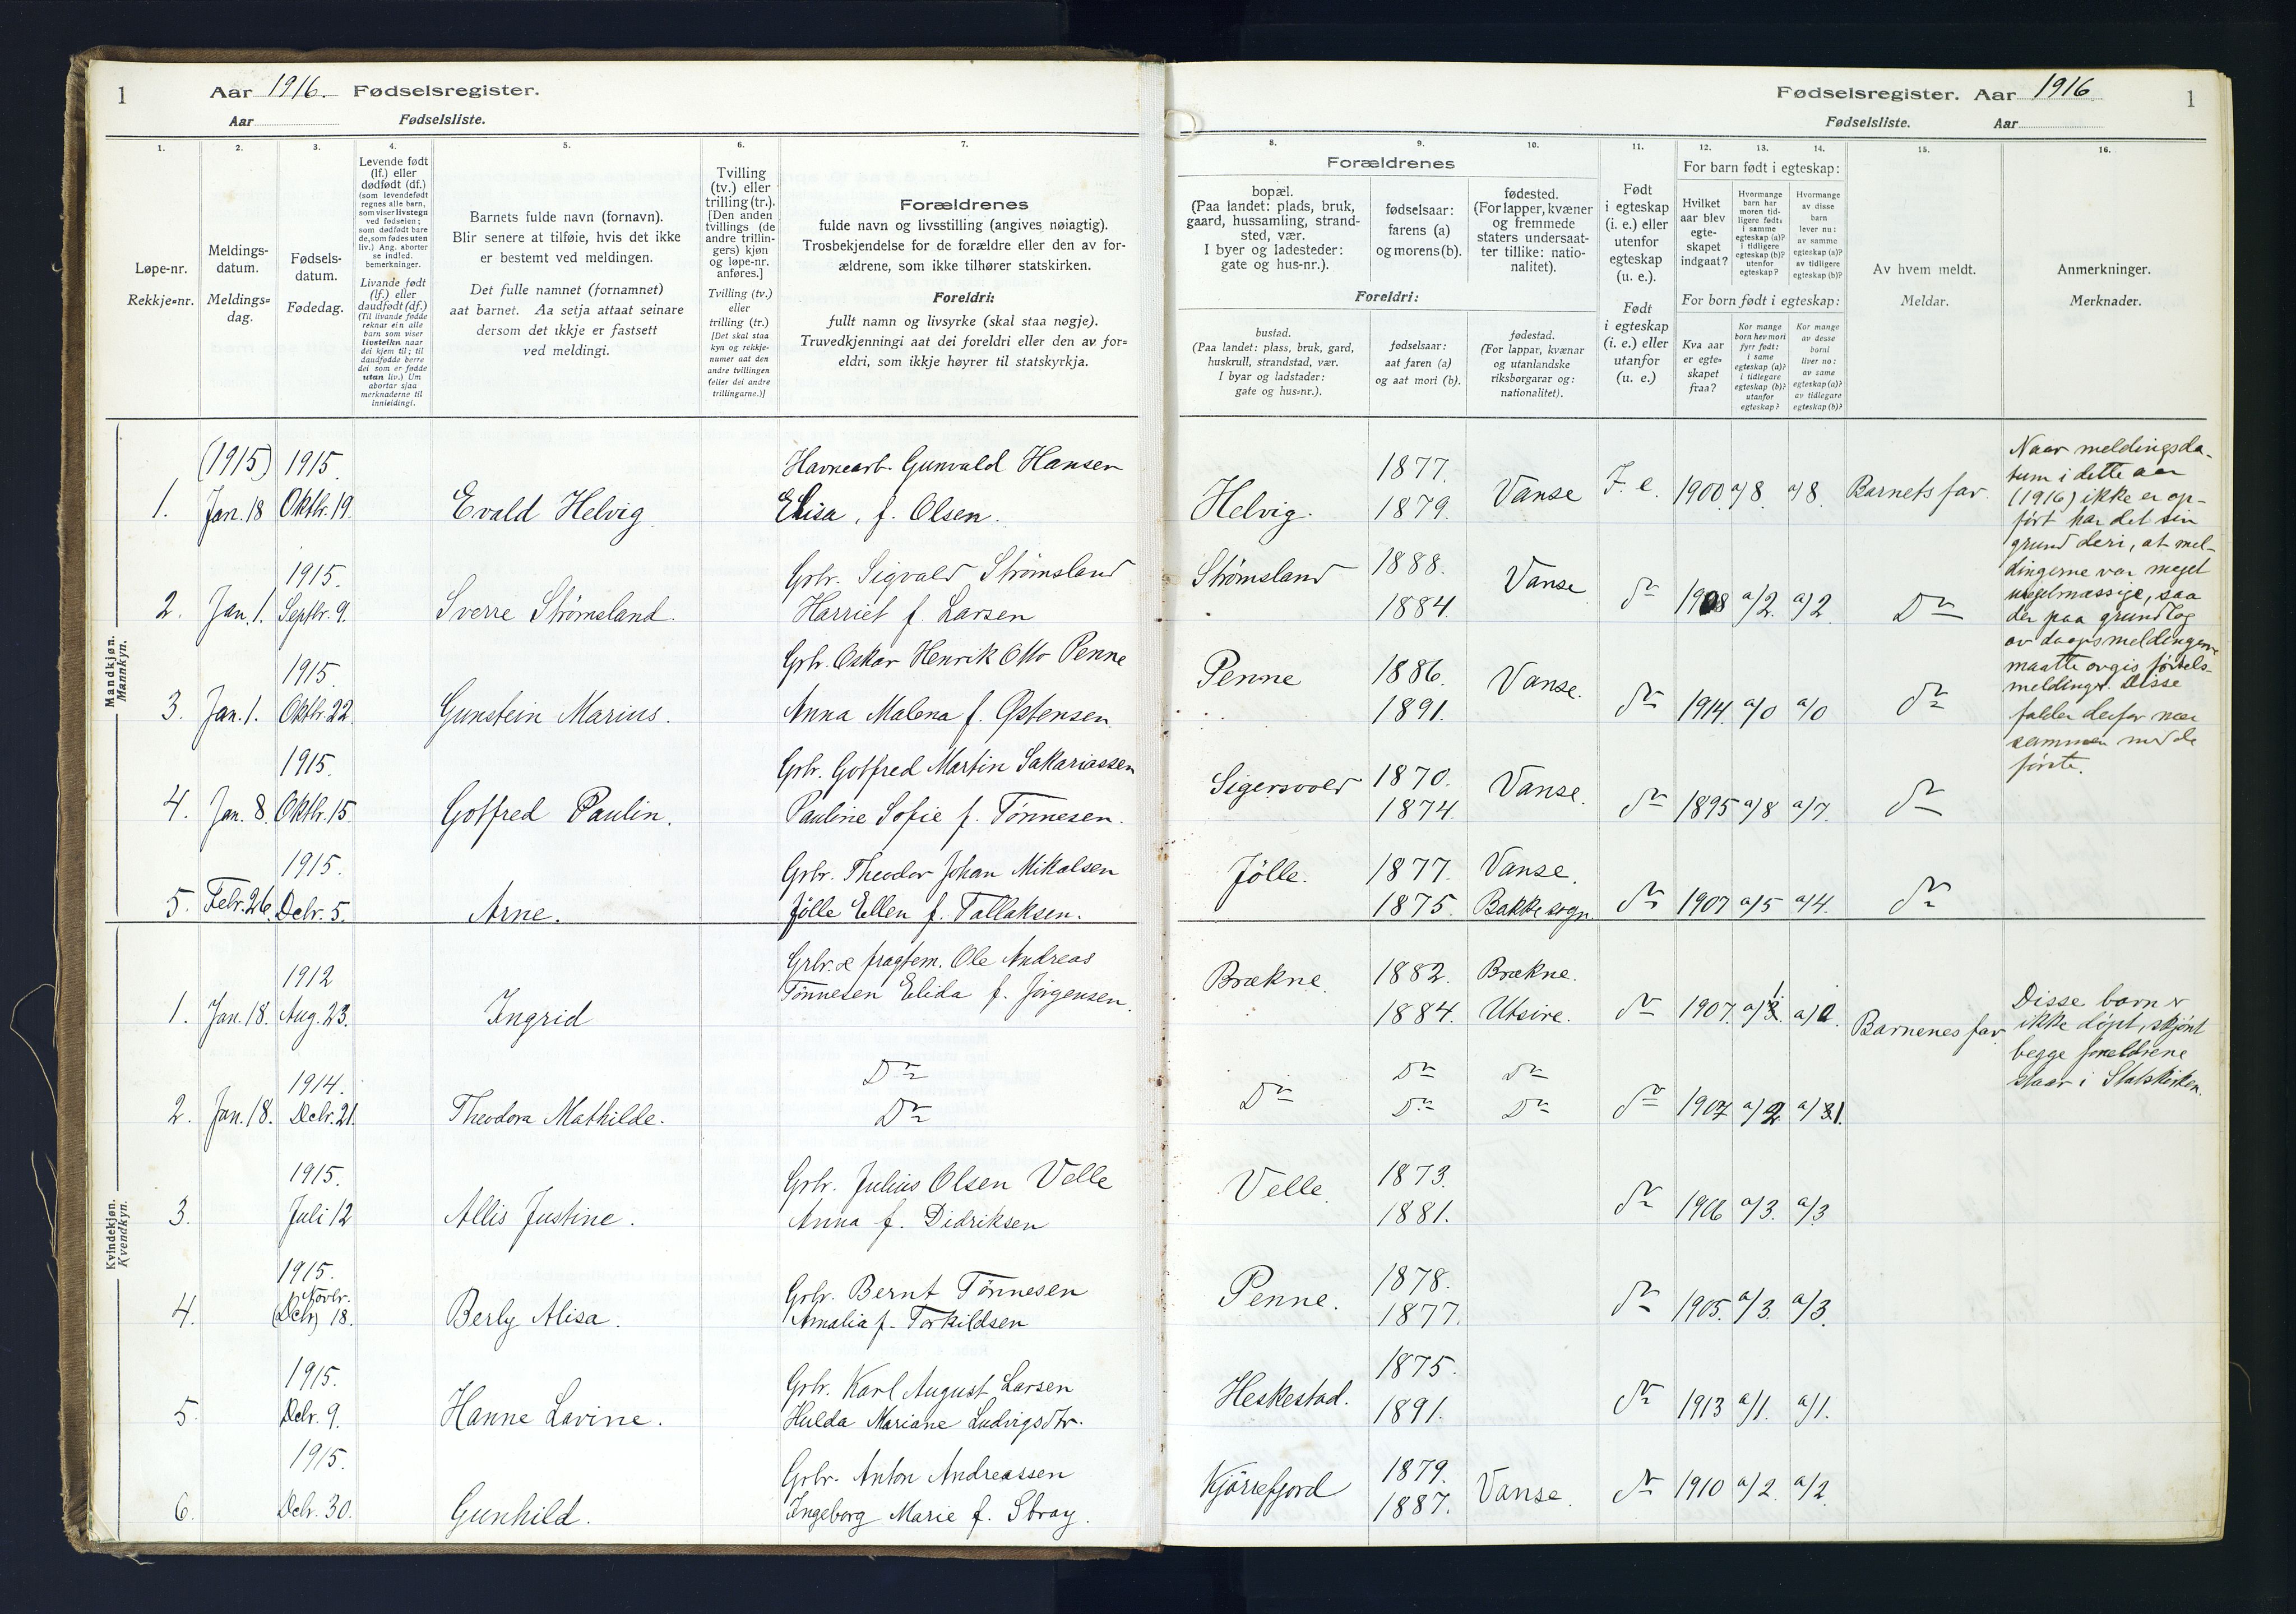 1
Aar 1916. Fødselsregister.
Aar Fødselsliste.
1.
2.
3.
4.
5.
6.
7.
Løpe-nr.
Rekkje=nr.
Meldings-
datum.
Meldings=
dag.
Fødsels-
datum.
Fødedag.
Levende født
(lf.) eller
dødfødt (df.)
(som levendefødt
regnes alle barn,
som viser livstegn
ved fødselen;
som dødfødt bare
de, som fødes uten
liv.) Ang. aborter
se indled.
bemerkninger.
Livande født
(lf.) eller
daudfødt (df.)
(Til livande fødde
reknar ein alle
barn som viser
livsteikn naar
dei kjem til; til
daudfødde berre
dei som er fødde
utan liv.) Um
abortar sjaa
merknaderne til
innleidingi.
Barnets fulde navn (fornavn).
Blir senere at tilføie, hvis det ikke
er bestemt ved meldingen.
Det fulle namnet (fornamnet)
aat barnet. Aa setja attaat seinare
dersom det ikkje er fastsett
ved meldingi.
Tvilling
(tv.) eller
trilling (tr.).
[Den anden
tvillings (de
andre trillin-
gers) kjøn
og løpe-nr.
anføres.]
Tvilling (tv.)
eller
trilling (tr.)
[Det skal staa
kyn og rekkje-
numer aat den
andre tvillingen
(eller dei andre
trillingarne.)]
Forældrenes
fulde navn og livsstilling (angives nøiagtig).
Trosbekjendelse for de forældre eller den av for-
ældrene, som ikke tilhører statskirken.
Foreldri:
fullt namn og livsyrke (skal staa nøgje).
Truvedkjenningi aat dei foreldri eller den av for=
eldri, som ikkje høyrer til statskyrkja.
Mandkjøn.
Mannkyn.
(1915) 1915. Havnearb. Gunvald Hansen
1. Jan. 18 Oktbr. 19. Evald Helvig Elisa, f. Olsen.
1915. Grbr. Sigvald Strømsland
2. Jan. 1. Septbr. 9. Sverre Strømsland. Harriet f. Larsen
1915. Grbr. Oskar Henrik Otto Penne
3. Jan. 1. Oktbr. 22. Gunstein Marius. Anna Malena f. Østensen
1915. Grbr. Gotfred Martin Sakariassen
4. Jan. 8. Oktbr. 15. Gotfred Paulin. Pauline Sofie f. Tønnesen.
1915. Grbr. Theodor Johan Mikalsen
5. Febr. 26. Decbr. 5. Arne. Jølle Ellen f. Tallaksen.
Kvindekjøn.
Kvendkyn.
1912 Grbr. & fragtem. Ole Andreas
1. Jan. 18. Aug. 23. Ingrid Tønnesen Elida f. Jørgensen.
1914. Do
2. Jan. 18. Decbr. 21. Theodora Mathilde. Do
1915. Grbr. Julius Olsen Velle
3. Juli 12 Allis Justine. Anna f. Didriksen
1915. Grbr. Bernt Tønnesen
Novbr.
4. (Decbr) 18. Berly Alisa. Amalia f. Torkildsen
1915. Grbr. Karl August Larsen
5. Decbr. 9. Hanne Lavine. Hulda Mariane Ludvigsdtr.
1915. Grbr. Anton Andreassen
6. Decbr. 30. Gunhild. Ingeborg Marie f. Stray.
Fødselsregister. Aar 1916.
1
Fødselsliste. Aar
8.
9.
10.
11.
12.
13.
14.
15.
16.
Forældrenes
bopæl.
(Paa landet: plads, bruk,
gaard, hussamling, strand-
sted, vær.
I byer og ladesteder:
gate og hus-nr.).
fødselsaar:
farens (a)
og morens (b).
fødested.
(For lapper, kvæner
og fremmede
staters undersaat-
ter tillike: natio-
nalitet).
Foreldri:
bustad.
(Paa landet: plass, bruk, gard,
huskrull, strandstad, vær.
I byar og ladstader:
gate og hus=nr.).
fødselsaar:
aat faren (a)
og aat mori (b).
fødestad.
(For lappar, kvænar
og utanlandske
riksborgarar og:
nationalitet).
Født
i egteskap
(i. e.) eller
utenfor
egteskap
(u. e.).
Født
i egteskap
(i. e.) eller
utanfor
(u. e.)
For barn født i egteskap:
Hvilket
aar blev
egte-
skapet
indgaat?
Hvormange
barn har
moren tid-
ligere født:
i samme
egteskap (a)?
i tidligere
egteskap (b)?
utenfor
egteskap?
Hvormange
av disse
barn
lever nu:
av samme
egteskap (a)?
av tidligere
egteskap (b)?
For born født i egteskap:
Kva aar
er egte=
skapet
fraa?
Kor mange
born hev mori
fyrr født:
i same
egteskap (a)?
i tidlegare
egteskap (b)?
utanfor
egteskap?
Kor mange
av desse
borni
liver no:
av same
egteskap (a)?
av tidlegare
egteskap (b)?
Av hvem meldt.
Meldar.
Anmerkninger.
Merknader.
1877.
Helvig. 1879. Vanse I. e. 1900. a/8. a/8. Barnets far.
Strømsland 1888. Vanse
1884. do 1908 a/2. a/2. Do
Penne 1886. Vanse.
1891. do 1914. a/0 a/0 do
Sigersvold 1870. Vanse.
1874. do 1895 a/8 a/7. do
Jølle. 1877. Vanse.
1875. Bakke sogn do 1907 a/5 a/4. do
Naar meldingsda-
tum i dette aar
(1916) ikke er op-
ført har det sin
grund deri, at mel-
dingerne var meget
uregelmæssige, saa
der paa grundlag
av daapsmeldingerne
maatte avgis fødsels-
meldinger. Disse
falder derfor nær
sammen med de
første.
Brækne. 1882. Brækne.
1884. Utsire. do 1907. a/1. a/0. Barnenes far
Disse barn er
ikke døpt, skjønt
begge foreldrene
staar i Statskirken.
Do Do Do
Do Do do 1907 a/2 a/1.
Velle. 1873.
1881. do 1906 a/3. a/3
Penne. 1878.
1877. do 1905. a/3. a/3.
Heskestad. 1875.
1891. do 1913 a/1. a/1.
Kjørrefjord 1879.
1887. Vanse. do 1910 a/2. a/2.